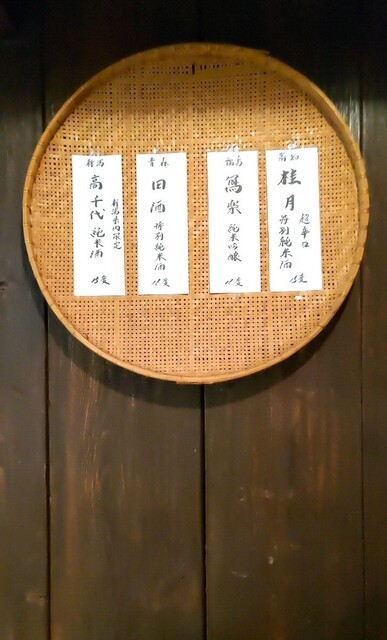 高知
桂月
超辛口
特別純米酒
福島
寫楽
純米吟醸
青森
田酒
特別純米酒
新潟
新潟県内限定
高千代
純米酒